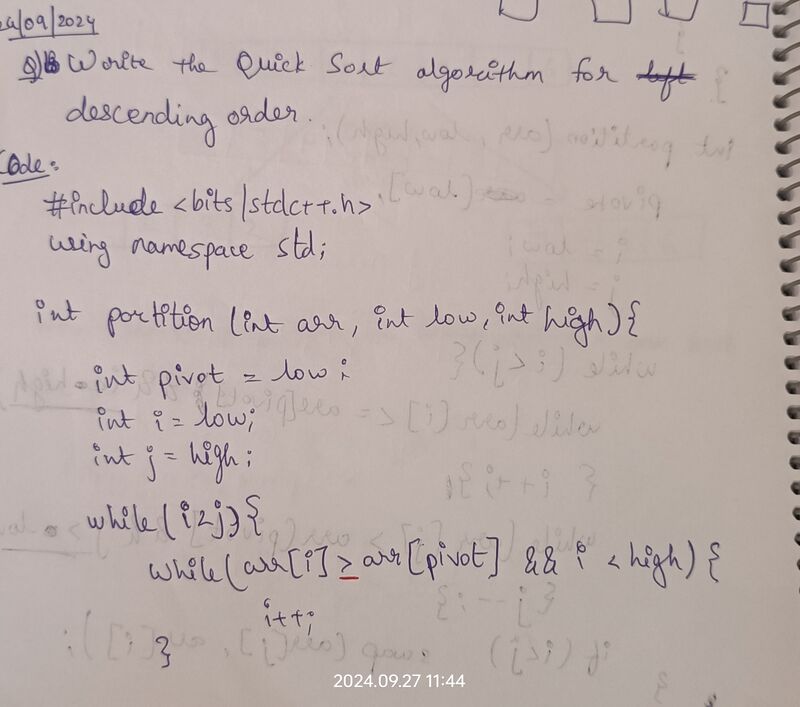 24/09/2024
Q) Write the Quick Sort algorithm for left
descending order.
Code:
#include <bits/stdc++.h>
using namespace std;
int partition (int arr, int low, int high){
int pivot = low;
int i = low;
int j = high;
while(i<j){
while(arr[i] ≥ arr[pivot] && i < high) {
i++;
}
2024.09.27 11:44